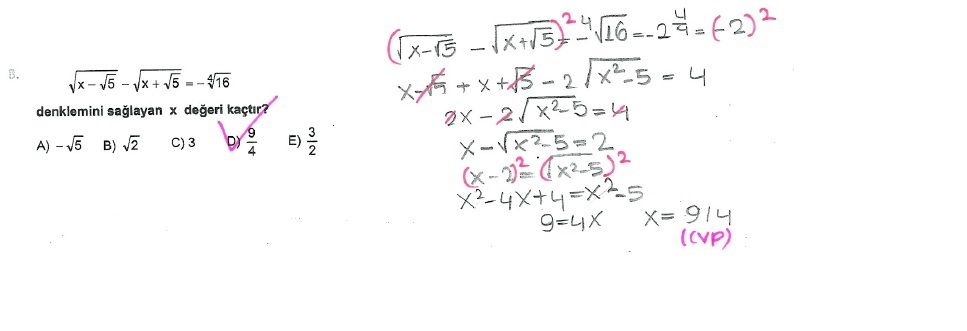 8.
√(x − √5) − √(x + √5) = −∜16
denklemini sağlayan x değeri kaçtır?
A) −√5 B) √2 C) 3 D) 9/4 E) 3/2
(√(x−√5) − √(x+√5))² = −∜16 = −2^(4/4) = (−2)²
x−√5 + x+√5 − 2√(x²−5) = 4
2x − 2√(x²−5) = 4
x − √(x²−5) = 2
(x−2)² = (√(x²−5))²
x²−4x+4 = x²−5
9=4x x= 9/4
(CVP)